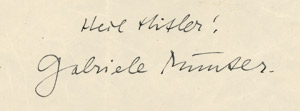 Heil Hitler!
Gabriele Münter.